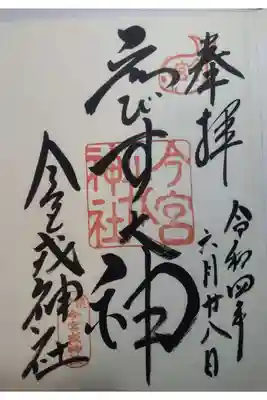 奉拝
令和四年
六月廿八日
ゑびす大神
今宮
神社
今宮戎神社